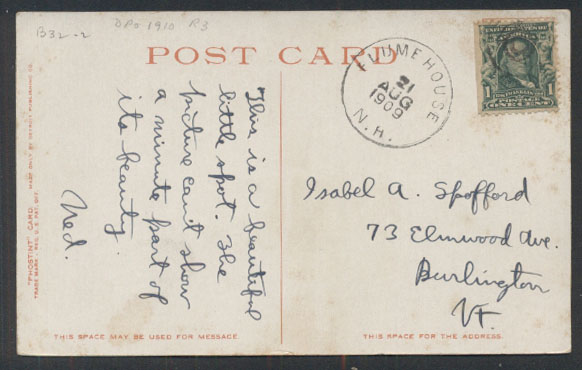 B32-2
DPO 1910 R3
POST CARD
FLUME HOUSE
21
AUG
1909
N.H.
1 1
POSTAGE ONE CENT
This is a beautiful
little spot. The
picture can't show
a minute part of
its beauty.
Ned.
Isabel A. Spofford
73 Elmwood Ave.
Burlington
VT.
"PHOSTINT" CARD. MADE ONLY BY DETROIT PUBLISHING CO.
TRADE MARK REG. U.S. PAT. OFF.
THIS SPACE MAY BE USED FOR MESSAGE
THIS SPACE FOR THE ADDRESS.